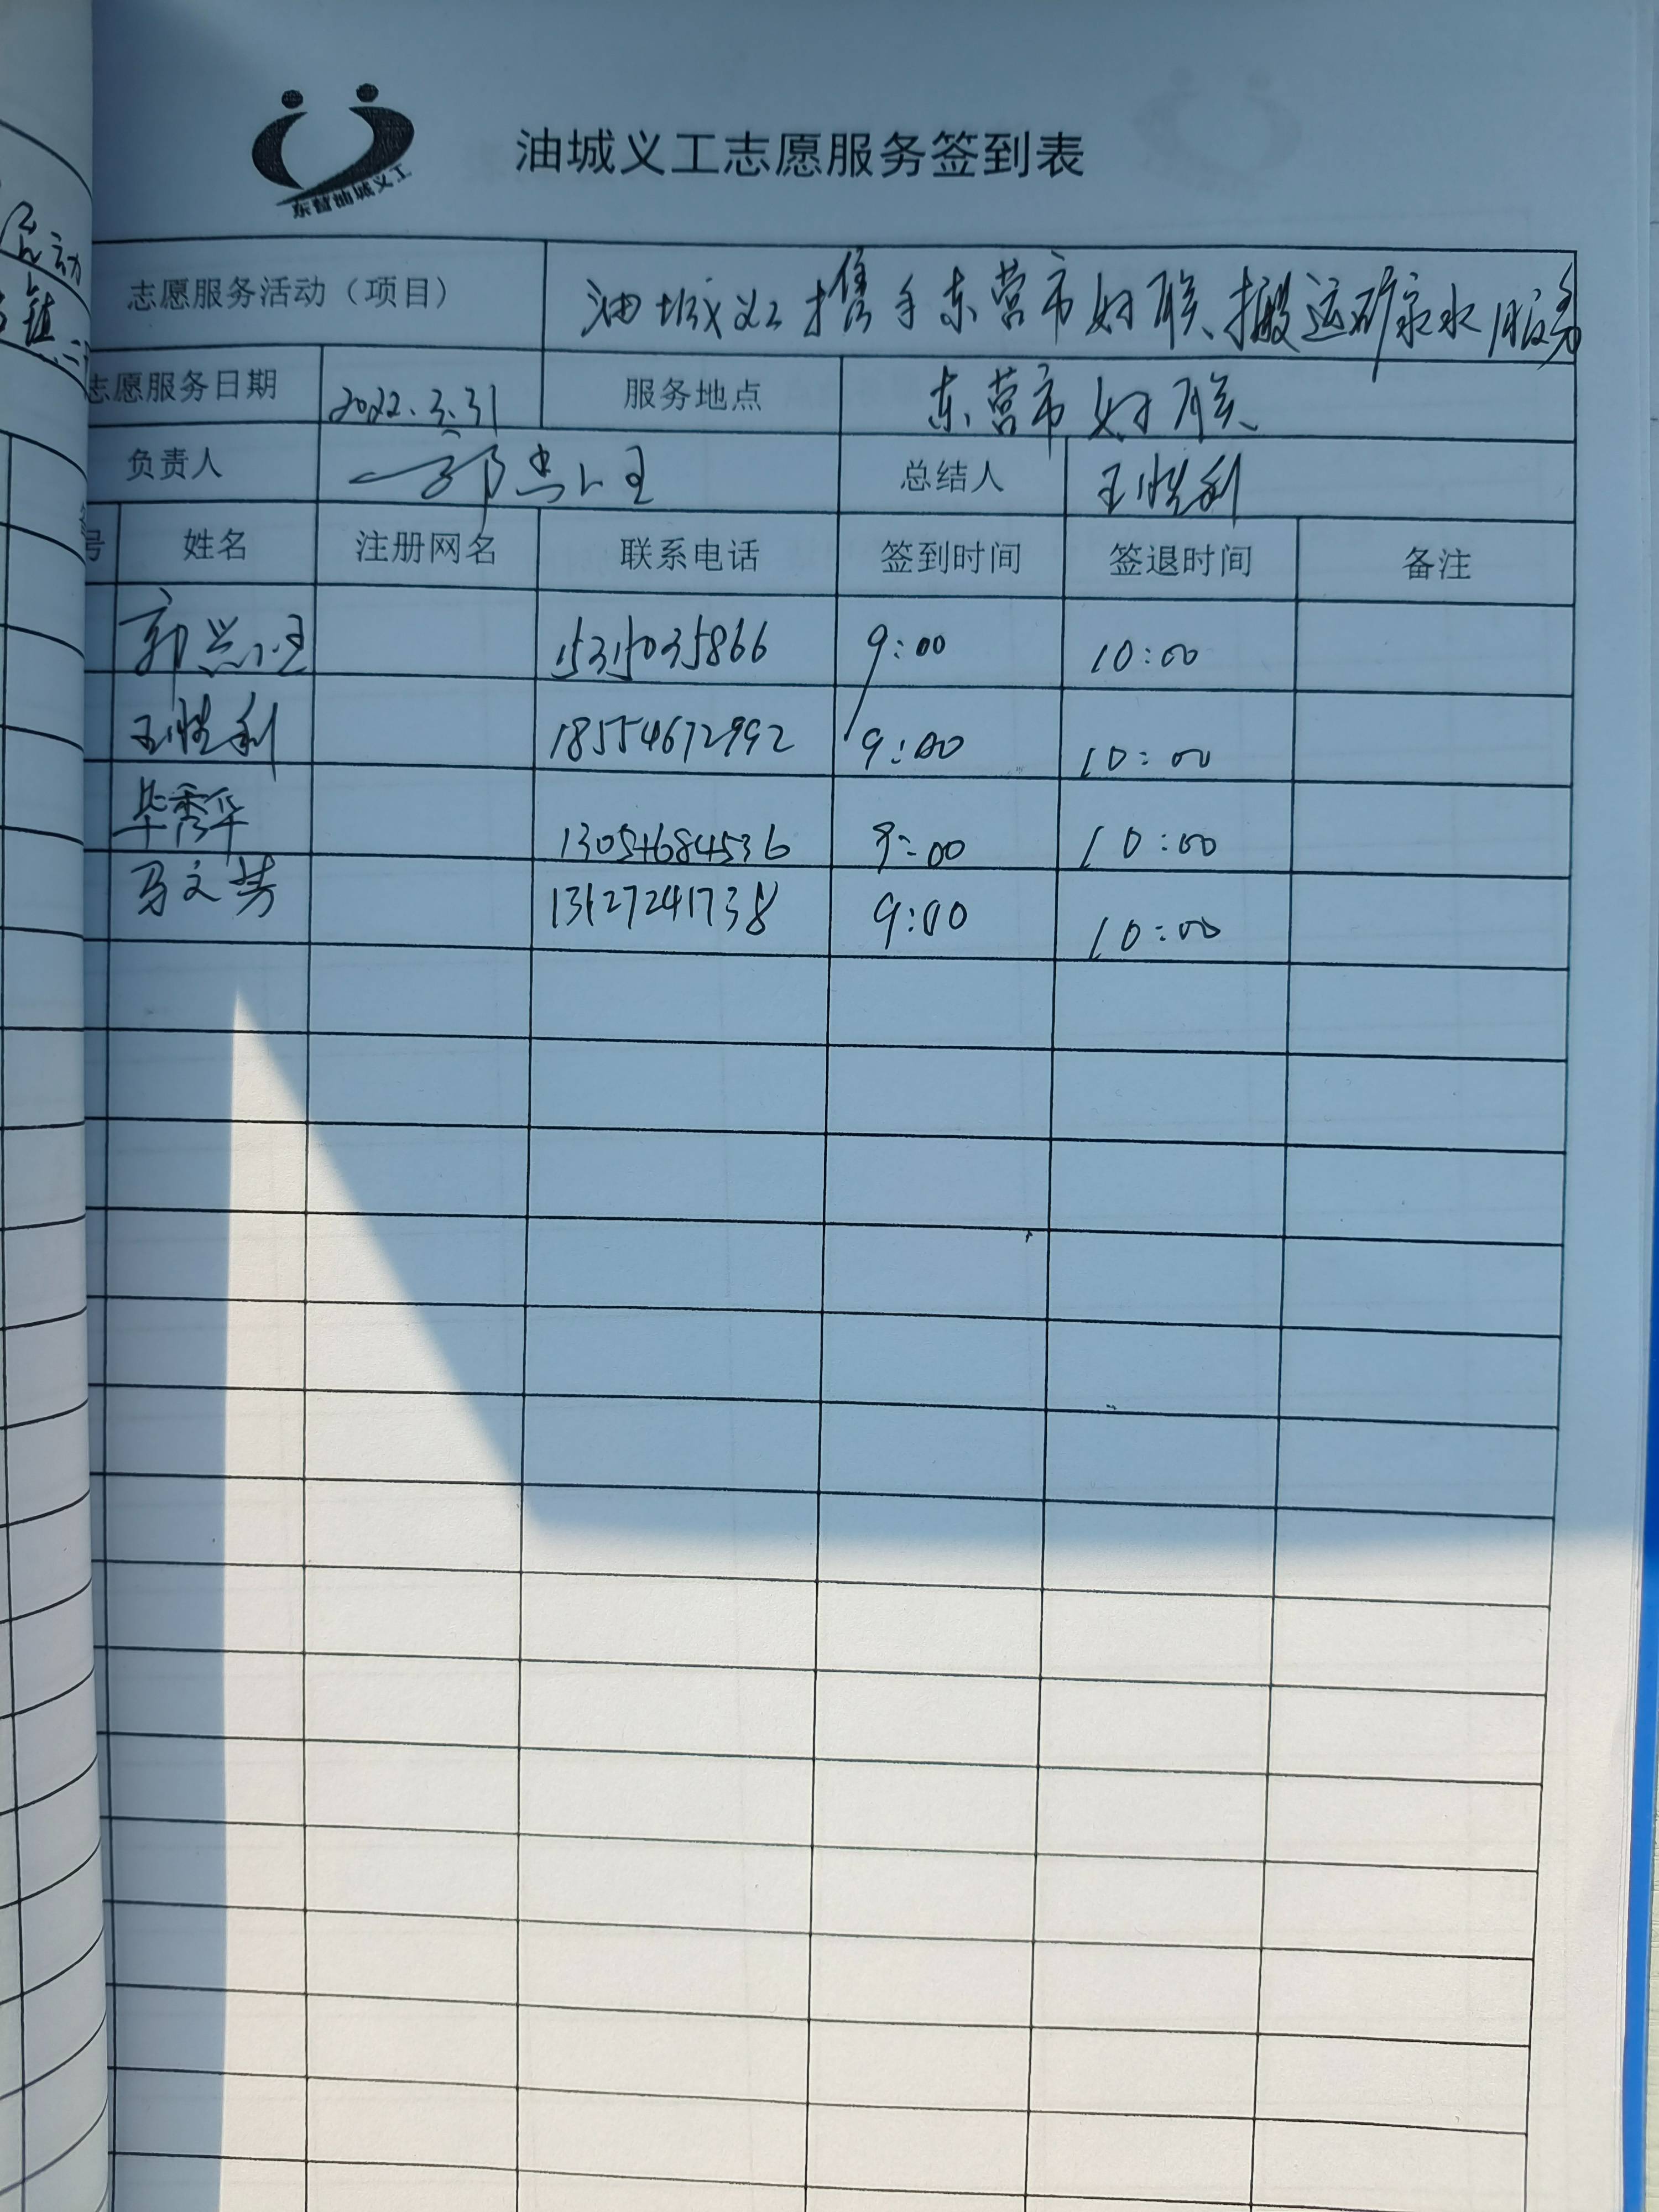 东营油城义工
油城义工志愿服务签到表
志愿服务活动（项目） 油城义工携手东营市妇联搬运矿泉水服务
志愿服务日期 2022.3.31 服务地点 东营市妇联
负责人 总结人 王胜利
号 姓名 注册网名 联系电话 签到时间 签退时间 备注
15315035866 9:00 10:00
王胜利 18554672992 9:00 10:00
毕秀华 13054684536 9:00 10:00
马文芳 9:00 10:00